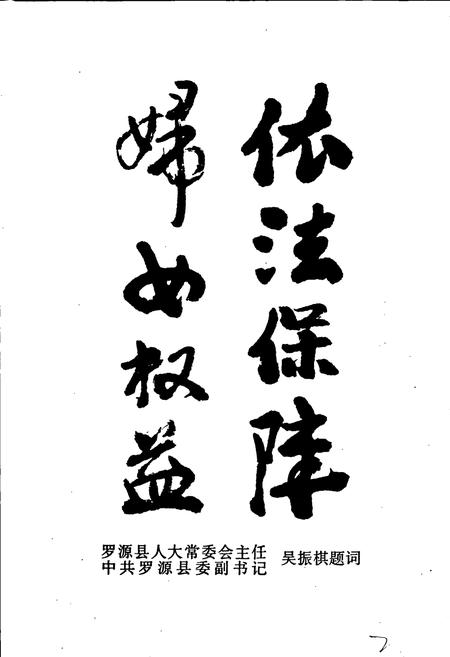 依法保障
婦女权益
罗源县人大常委会主任
中共罗源县委副书记
吴振棋题词